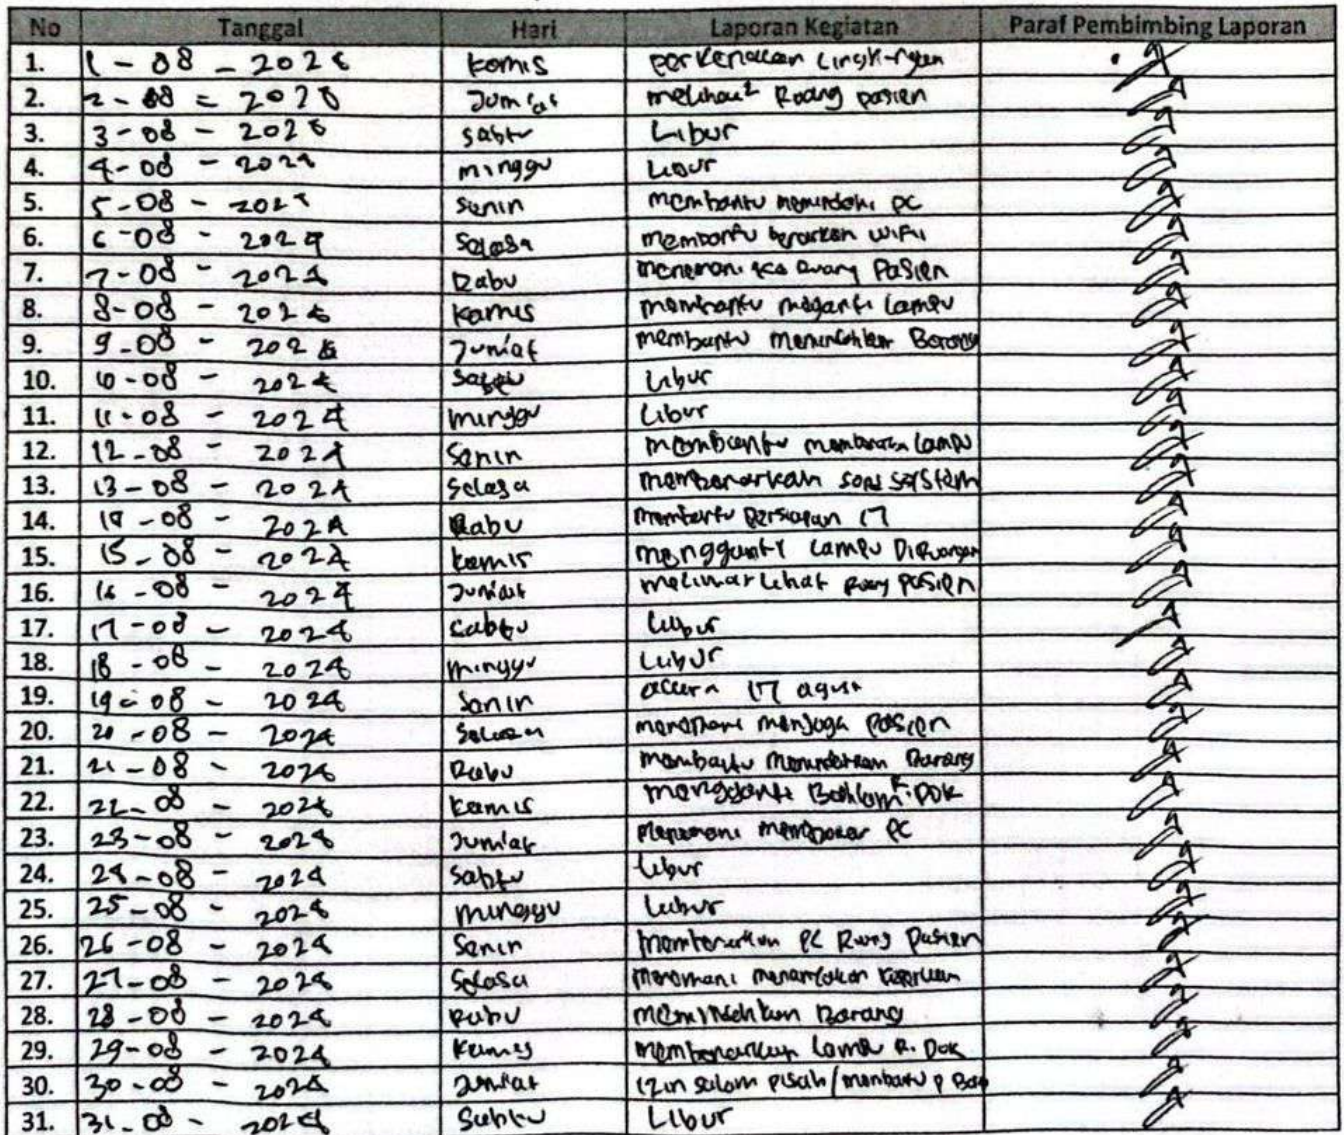 No Tanggal Hari Laporan Kegiatan Paraf Pembimbing Laporan
1. 1-08-2024 Kamis Perkenalan Lingkungan
2. 2-08-2024 Jum'at melihat² Ruang pasien
3. 3-08-2024 Sabtu Libur
4. 4-08-2024 minggu Libur
5. 5-08-2024 Senin membantu memindahi PC
6. 6-08-2024 Selasa membantu benarkan wifi
7. 7-08-2024 Rabu menemani ke Ruang Pasien
8. 8-08-2024 Kamis membantu meganti Lampu
9. 9-08-2024 Jum'at membantu memindahkan Barang
10. 10-08-2024 Sabtu Libur
11. 11-08-2024 minggu Libur
12. 12-08-2024 Senin membantu Lampu
13. 13-08-2024 Selasa membenarkan
14. 14-08-2024 Rabu membantu Persiapan 17
15. 15-08-2024 Kamis mengganti Lampu Diruangan
16. 16-08-2024 Jum'at melihat Lihat Ruang pasien
17. 17-08-2024 Sabtu Libur
18. 18-08-2024 minggu Libur
19. 19-08-2024 Senin accara 17 agust
20. 20-08-2024 Selasa menemani menjaga Pasien
21. 21-08-2024 Rabu membantu memindahkan Barang
22. 22-08-2024 Kamis mengganti Bohlam R. DOK
23. 23-08-2024 Jum'at menemani PC
24. 24-08-2024 Sabtu Libur
25. 25-08-2024 minggu Libur
26. 26-08-2024 Senin membenarkan PC Ruang Pasien
27. 27-08-2024 Selasa menemani
28. 28-08-2024 Rabu memindahkan Barang
29. 29-08-2024 Kamis membenarkan Lampu R. Dok
30. 30-08-2024 Jum'at izin salam pisah/membantu P
31. 31-08-2024 Sabtu Libur